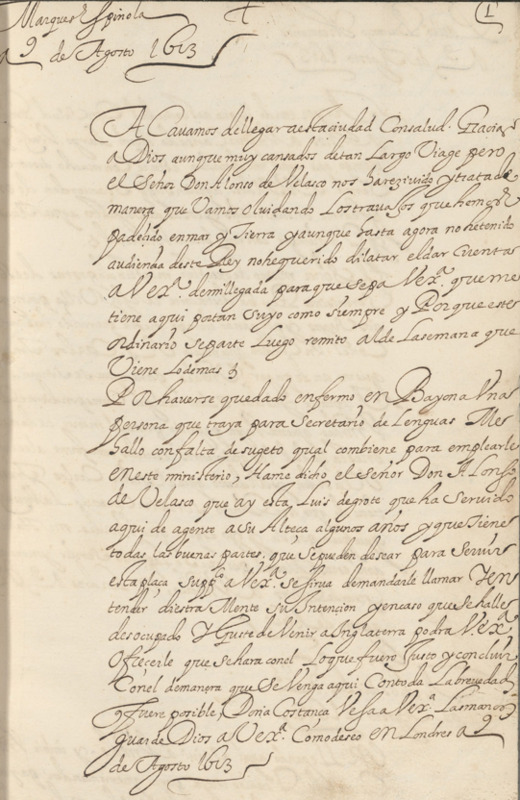 Marques Spinola
a 9 de Agosto 1613
1
A Cavamos dellegar aestaciudad Consalud. Gracias
a Dios aunque muy cansados detan Largo Viage pero
el Señor Don Alonso de Velasco nos harezivido ytratado
manera que Vamos olvidando Lostravajos que hemos
padeçido enmar y Tierra yaunque hasta agora nohetenido
audiençia deste Rey nohequerido dilatar eldar Cuenta
a Vexª. demillegada paraque sepa Vexª. que me
tiene aqui portan Suyo como siempre y Porque este
ordinario separte Luego remito alde Lasemana que
Viene Lodemas
Por haverse quedado enfermo en Bayona Una
persona que traya para Secretario de Lenguas Me
hallo confalta de sugeto qual combiene para emplearle
eneste ministerio, Hame dicho el Señor Don Alonso
de Velasco que ay esta Luis degrote que ha Servido
aqui de agente a Su Alteça algunos años yque Tiene
todas las buenas partes, que sepueden desear para Servir
estaplaça Suppco a Vexª. sesirva demandarle llamar Yen
tender diestra Mente su Intencion yencaso que sehalle
desocupado Y Guste de Venir a Inglaterra podra V.exª.
Ofreçerle que sehara conel Loque fuere Justo y concluir
Conel demanera que Se Venga aqui Contoda Labrevedad
q fuere posible, Doña Costança Vesa a Vexª Lasmanos
Guarde Dios a Vexª. Comodeseo en Londres a 9
de Agosto 1613